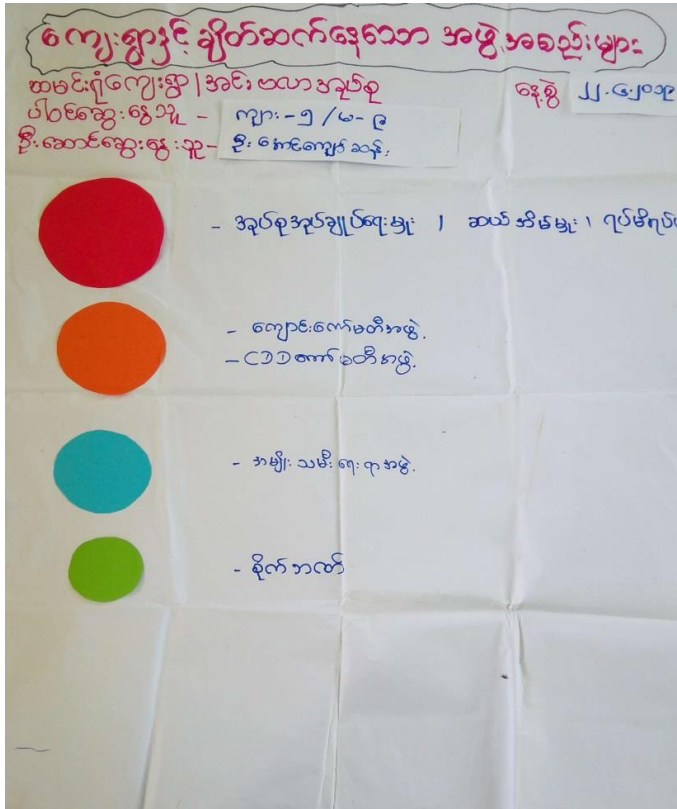 ကျေးရွာနှင့် ချိတ်ဆက်နေသော အဖွဲ့အစည်းများ
ထမင်းရုံကျေးရွာ၊ အင်းဗလာအုပ်စု နေ့စွဲ ၂၂.၆.၂၀၁၉
ပါဝင်ဆွေးနွေးသူ - ကျား-၅/မ-၉
ဦးဆောင်ဆွေးနွေးသူ- ဦးအောင်ကျော်ဆန်း
- အုပ်စုအုပ်ချုပ်ရေးမှုး ၊ ဆယ်အိမ်မှုး ၊ ရပ်မိရပ်
- ကျောင်းကော်မတီအဖွဲ့
- CDD ကော်မတီအဖွဲ့
- အမျိုးသမီးရေးရာအဖွဲ့
- စိုက်ဘဏ်